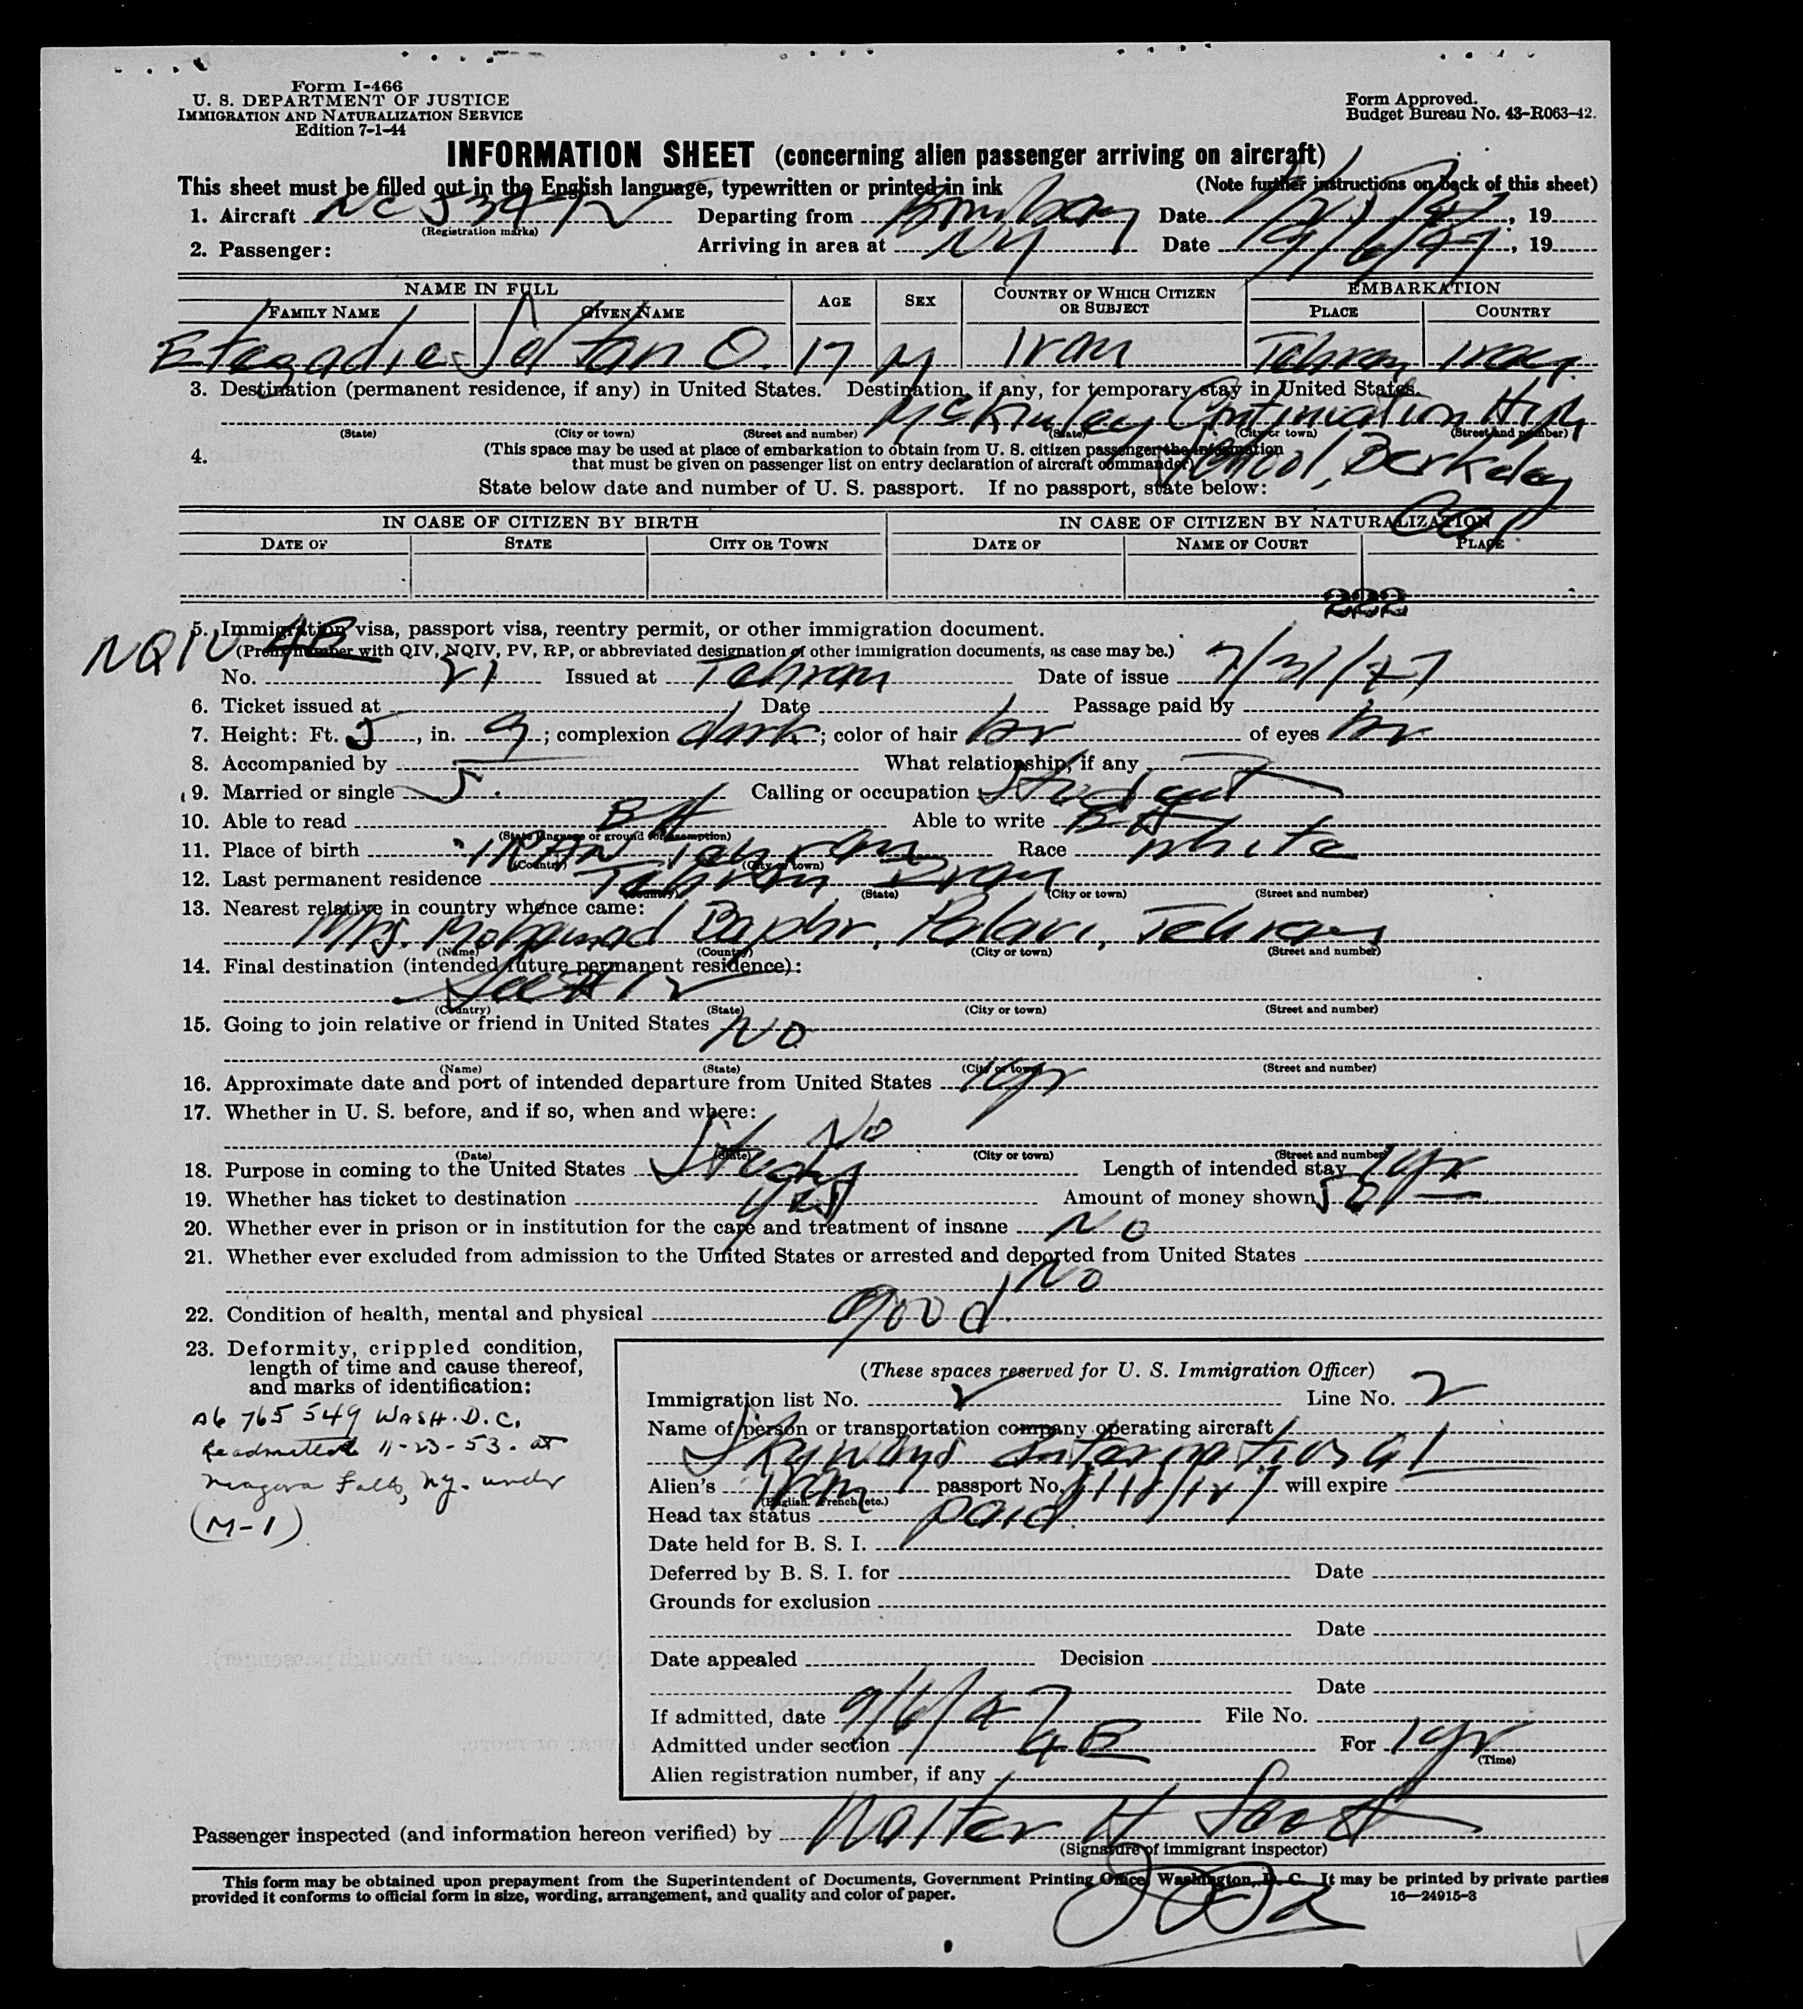 Form I-466
U. S. DEPARTMENT OF JUSTICE
IMMIGRATION AND NATURALIZATION SERVICE
Edition 7-1-44
Form Approved.
Budget Bureau No. 43-R063-42.
INFORMATION SHEET (concerning alien passenger arriving on aircraft)
This sheet must be filled out in the English language, typewritten or printed in ink (Note further instructions on back of this sheet)
1. Aircraft NC Departing from Bombay Date 19
(Registration marks)
2. Passenger: Arriving in area at NY Date 9/6/47, 19
NAME IN FULL AGE SEX COUNTRY OF WHICH CITIZEN OR SUBJECT EMBARKATION
FAMILY NAME GIVEN NAME PLACE COUNTRY
Etezadie Soltan O. 17 M Iran Tehran Iran
3. Destination (permanent residence, if any) in United States. Destination, if any, for temporary stay in United States.
McKinley Continuation High
(State) (City or town) (Street and number) (State) (City or town) (Street and number)
School, Berkeley
Cal
4. (This space may be used at place of embarkation to obtain from U. S. citizen passenger the information
that must be given on passenger list on entry declaration of aircraft commander)
State below date and number of U. S. passport. If no passport, state below:
IN CASE OF CITIZEN BY BIRTH IN CASE OF CITIZEN BY NATURALIZATION
DATE OF STATE CITY OR TOWN DATE OF NAME OF COURT PLACE
222
5. Immigration visa, passport visa, reentry permit, or other immigration document.
NQIV 4E (Prefix number with QIV, NQIV, PV, RP, or abbreviated designation of other immigration documents, as case may be.)
No. 21 Issued at Tehran Date of issue 7/31/47
6. Ticket issued at Date Passage paid by
7. Height: Ft. 5, in. 9; complexion dark; color of hair br of eyes br
8. Accompanied by What relationship, if any
9. Married or single S. Calling or occupation Student
10. Able to read Able to write
(State language or ground for exemption)
11. Place of birth IRAN Tehran Race White
(Country) (City or town)
12. Last permanent residence Tehran Iran
(Country) (State) (City or town) (Street and number)
13. Nearest relative in country whence came:
Mrs. Mohamad Palavi, Tehran
(Name) (Country) (City or town) (Street and number)
14. Final destination (intended future permanent residence):
See # 12
(Country) (State) (City or town) (Street and number)
15. Going to join relative or friend in United States No
(Name) (State) (City or town) (Street and number)
16. Approximate date and port of intended departure from United States 1 yr
17. Whether in U. S. before, and if so, when and where:
No
(Date) (State) (City or town) (Street and number)
18. Purpose in coming to the United States Study Length of intended stay 1 yr
19. Whether has ticket to destination yes Amount of money shown
20. Whether ever in prison or in institution for the care and treatment of insane No
21. Whether ever excluded from admission to the United States or arrested and deported from United States
No
22. Condition of health, mental and physical good
23. Deformity, crippled condition,
length of time and cause thereof,
and marks of identification:
A6 765 549 WASH. D.C.
Readmitted 11-23-53. at
Niagara Falls, NY. under
(M-1)
(These spaces reserved for U. S. Immigration Officer)
Immigration list No. 2 Line No. 2
Name of person or transportation company operating aircraft
Skyways International
Alien's Iran passport No. will expire
(English, French, etc.)
Head tax status paid
Date held for B. S. I.
Deferred by B. S. I. for Date
Grounds for exclusion
Date
Date appealed Decision
Date
If admitted, date 9/6/47 File No.
Admitted under section 4E For 1 yr
(Time)
Alien registration number, if any
Passenger inspected (and information hereon verified) by Walter H Scott
(Signature of immigrant inspector)
This form may be obtained upon prepayment from the Superintendent of Documents, Government Printing Office, Washington, D. C. It may be printed by private parties
provided it conforms to official form in size, wording, arrangement, and quality and color of paper. 16—24915-3